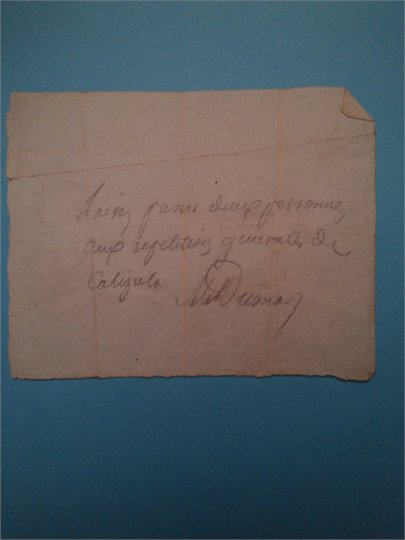 Laisez passer deux personnes
aux repetitions generalles de
Caligula
Al Dumas